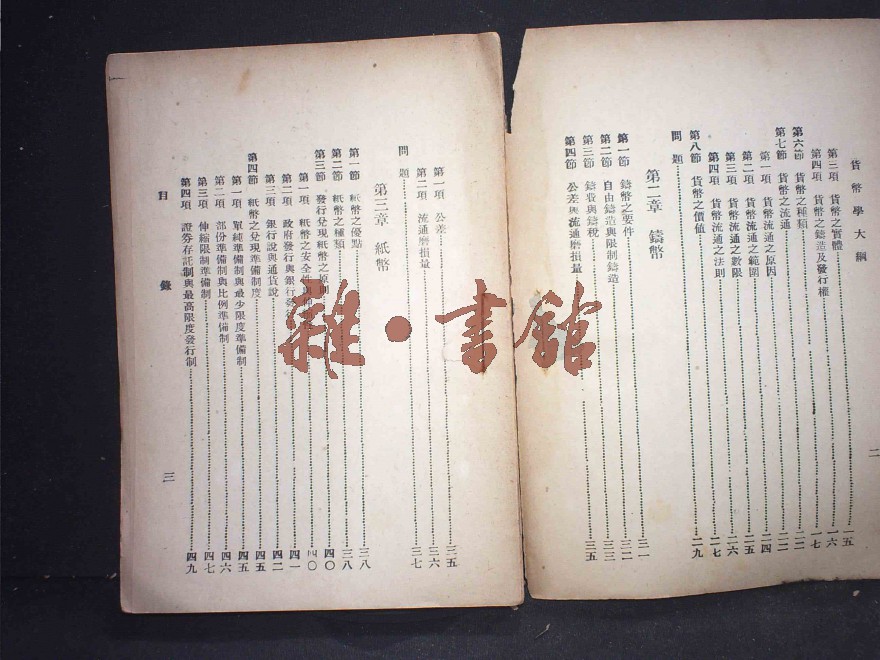 貨幣學大綱 二
第三項 貨幣之實體 一五
第四項 貨幣之鑄造及發行權 一六
第六節 貨幣之種類 一七
第七節 貨幣之流通 二二
第一項 貨幣流通之原因 二二
第二項 貨幣流通之範圍 二四
第三項 貨幣流通之數限 二五
第四項 貨幣流通之法則 二六
第八節 貨幣之價値 二七
問題 二九
第二章 鑄幣
第一節 鑄幣之要件 三一
第二節 自由鑄造與限制鑄造 三二
第三節 鑄費與鑄稅 三三
第四節 公差與流通磨損量 三五
第一項 公差 三五
第二項 流通磨損量 三六
問題 三七
第三章 紙幣
第一節 紙幣之優點 三八
第二節 紙幣之種類 三八
第三節 發行兌現紙幣之原則 四〇
第一項 紙幣之安全性與 四〇
第二項 政府發行與銀行發行 四一
第三項 銀行說與通貨說 四二
第四節 紙幣之兌現準備制度 四五
第一項 單純準備制與最少限度準備制 四五
第二項 部份準備制與比例準備制 四六
第三項 伸縮限制準備制 四七
第四項 證券存託制與最高限度發行制 四九
目錄 三
雜·書館